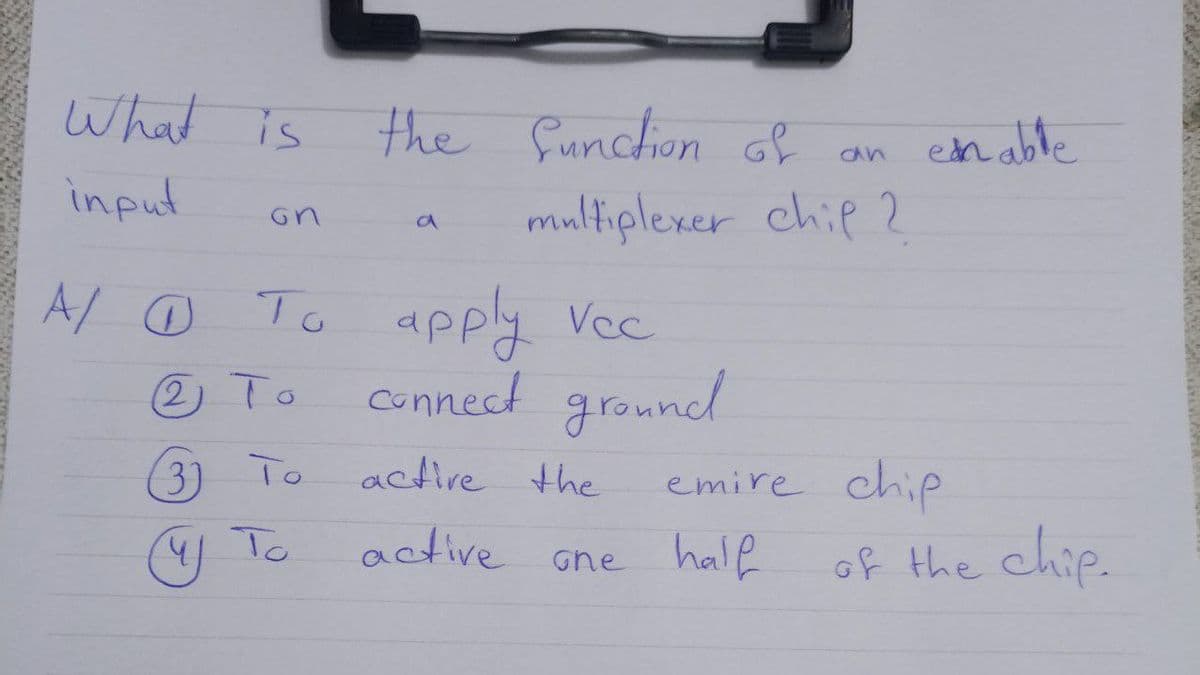 What is the function of an enable
input on a multiplexer chip?
A/ ① To apply Vcc
② To connect ground
③ To active the emire chip
④ To active one half of the chip.